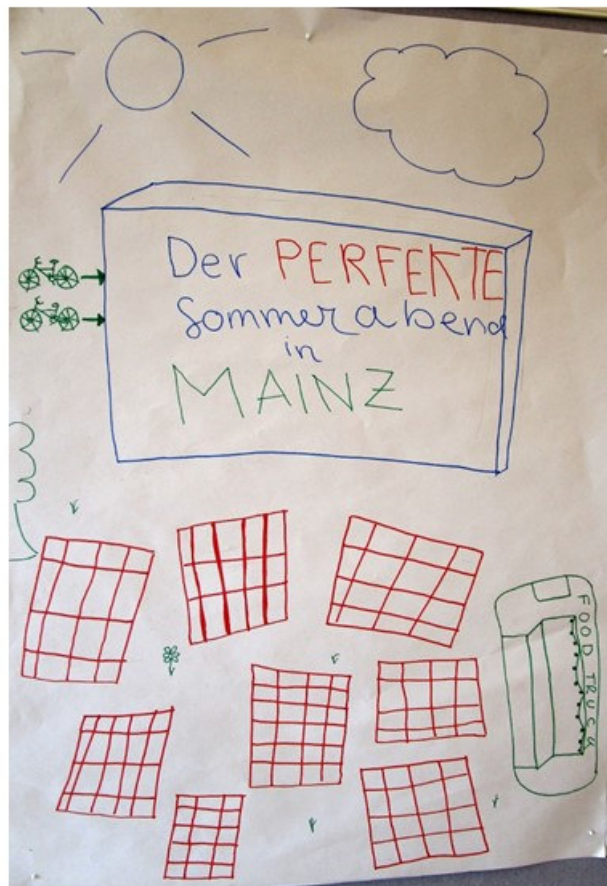 Der PERFEKTE
Sommerabend
in
MAINZ
FOOD TRUCK